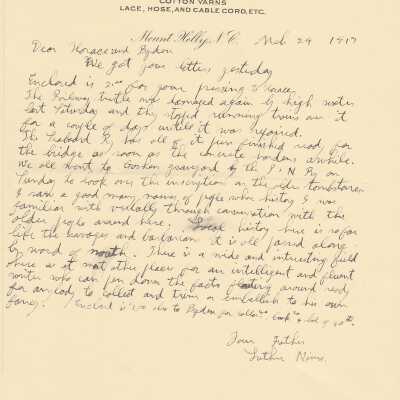 COTTON YARNS
LACE, HOSE, AND CABLE CORD, ETC.
Mount Holly, N. C. Mch 29 1917
Dear Horace and Pegdon
We got your letters yesterday
Enclosed is 2.00 for your pressing Horace
The Railway trestle was damaged again by high water
last Saturday and they stopped running trains over it
for a couple of days until it was repaired.
The Seaboard Ry has all of it piers finished ready for
the bridge as soon as the concrete hardens awhile.
We all went to graveyard by the P & N Ry on
Sunday to look over the inscription on the older tombstones
I saw a good many names of people who history I was
familiar with verbally through conversation with the
older people around here. Local history here is so far
like the savages and barbarian it is all passed along
by word of mouth. There is a wide and interesting field
here as at most other places for an intelligent and fluent
writer who can pen down the facts floating around ready
for anybody to collect and trim or embellish to his own
fancy. Enclosed is also to
Your Father
Luther Nims.